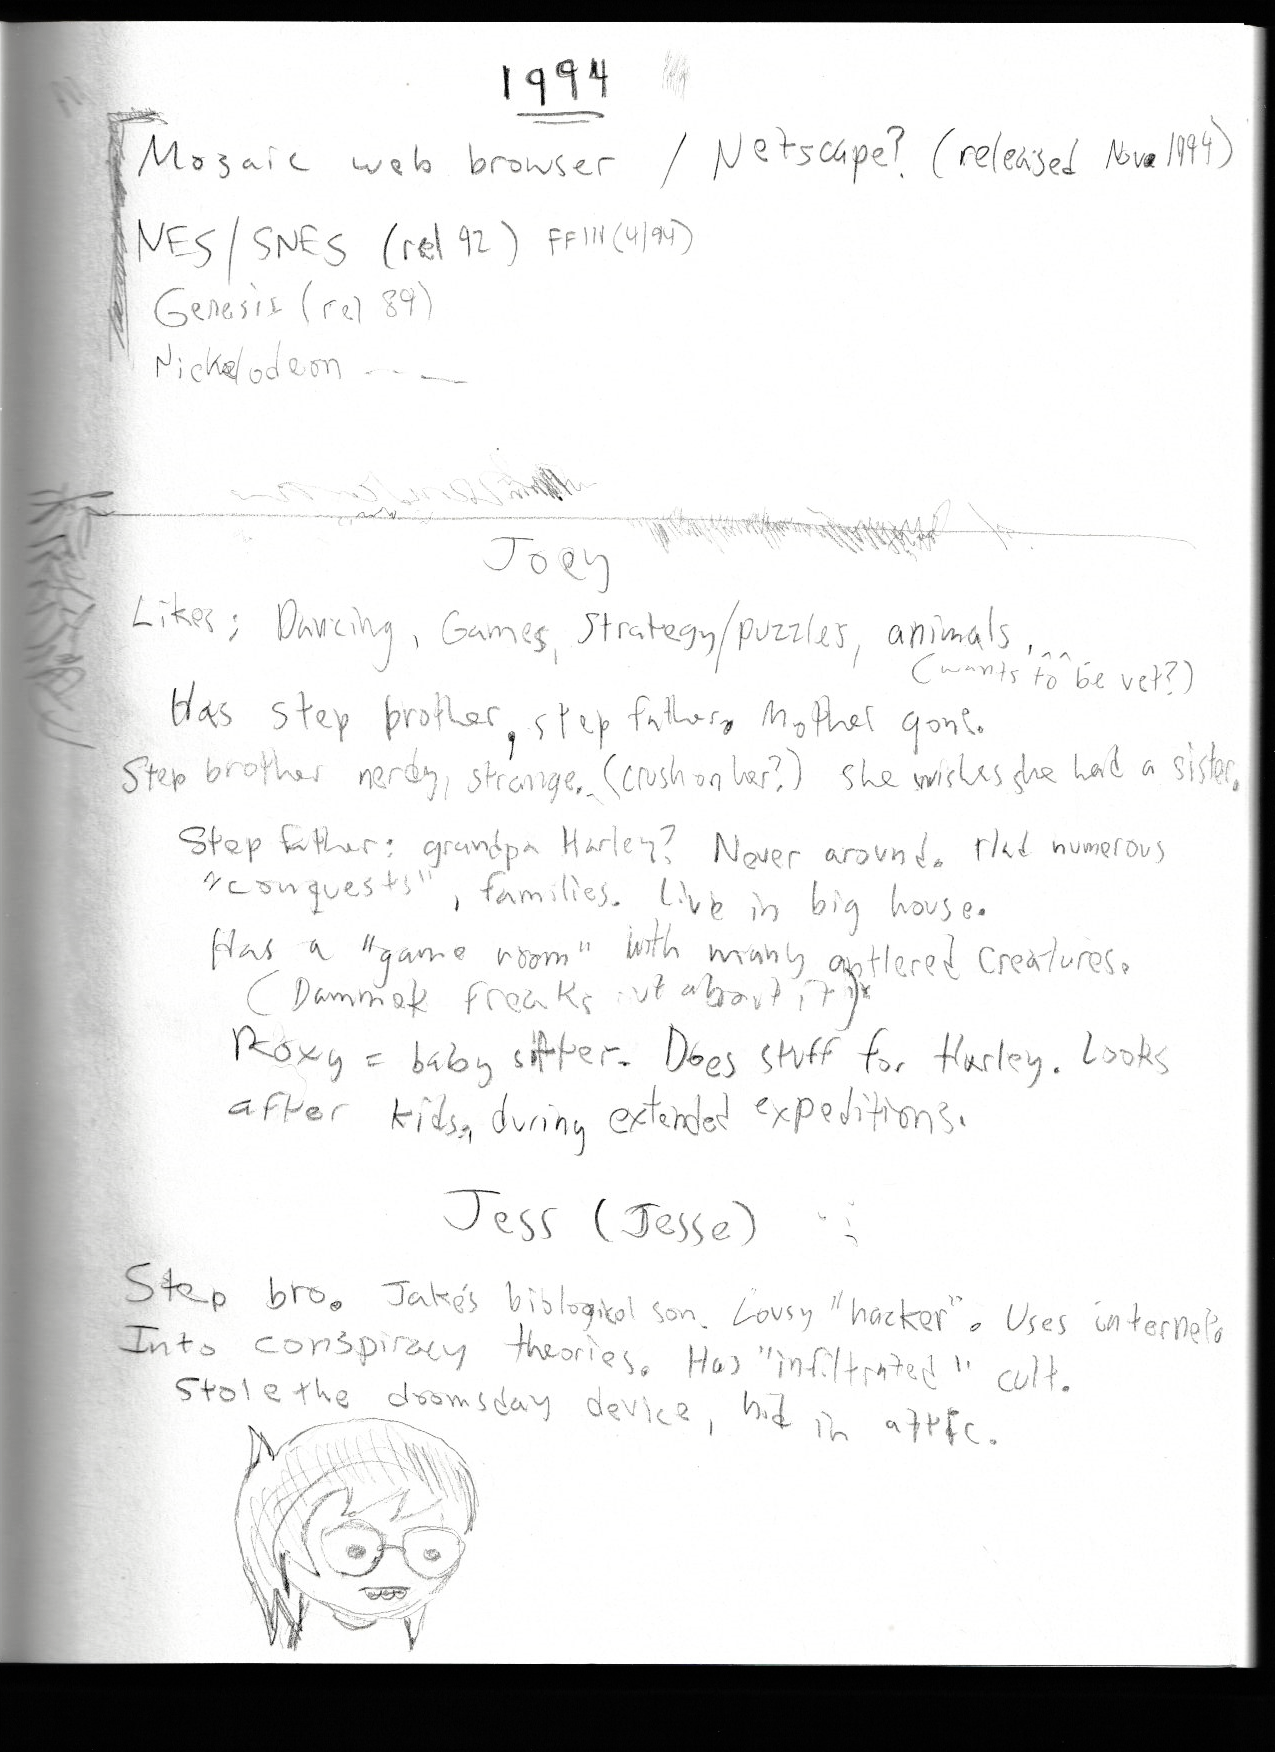 1994
Mozaic web browser / Netscape? (released Nov 1994)
NES/SNES (rel 92) FFIII (4/94)
Genesis (rel 89)
Nickelodeon ---
Joey
Likes: Dancing, Games, Strategy/puzzles, animals,
(wants to be vet?)
Has step brother, step father. Mother gone.
Step brother nerdy, strange. (crush on her?) she wishes she had a sister.
Step father: grandpa Harley? Never around. Had numerous
"conquests", families. Live in big house.
Has a "game room" with many antlered creatures.
(Dammek freaks out about it)*
Roxy = baby sitter. Does stuff for Harley. Looks
after kids, during extended expeditions.
Jess (Jesse)
Step bro. Jake's biological son. Lousy "hacker". Uses internet.
Into conspiracy theories. Has "infiltrated" cult.
Stole the doomsday device, hid in attic.